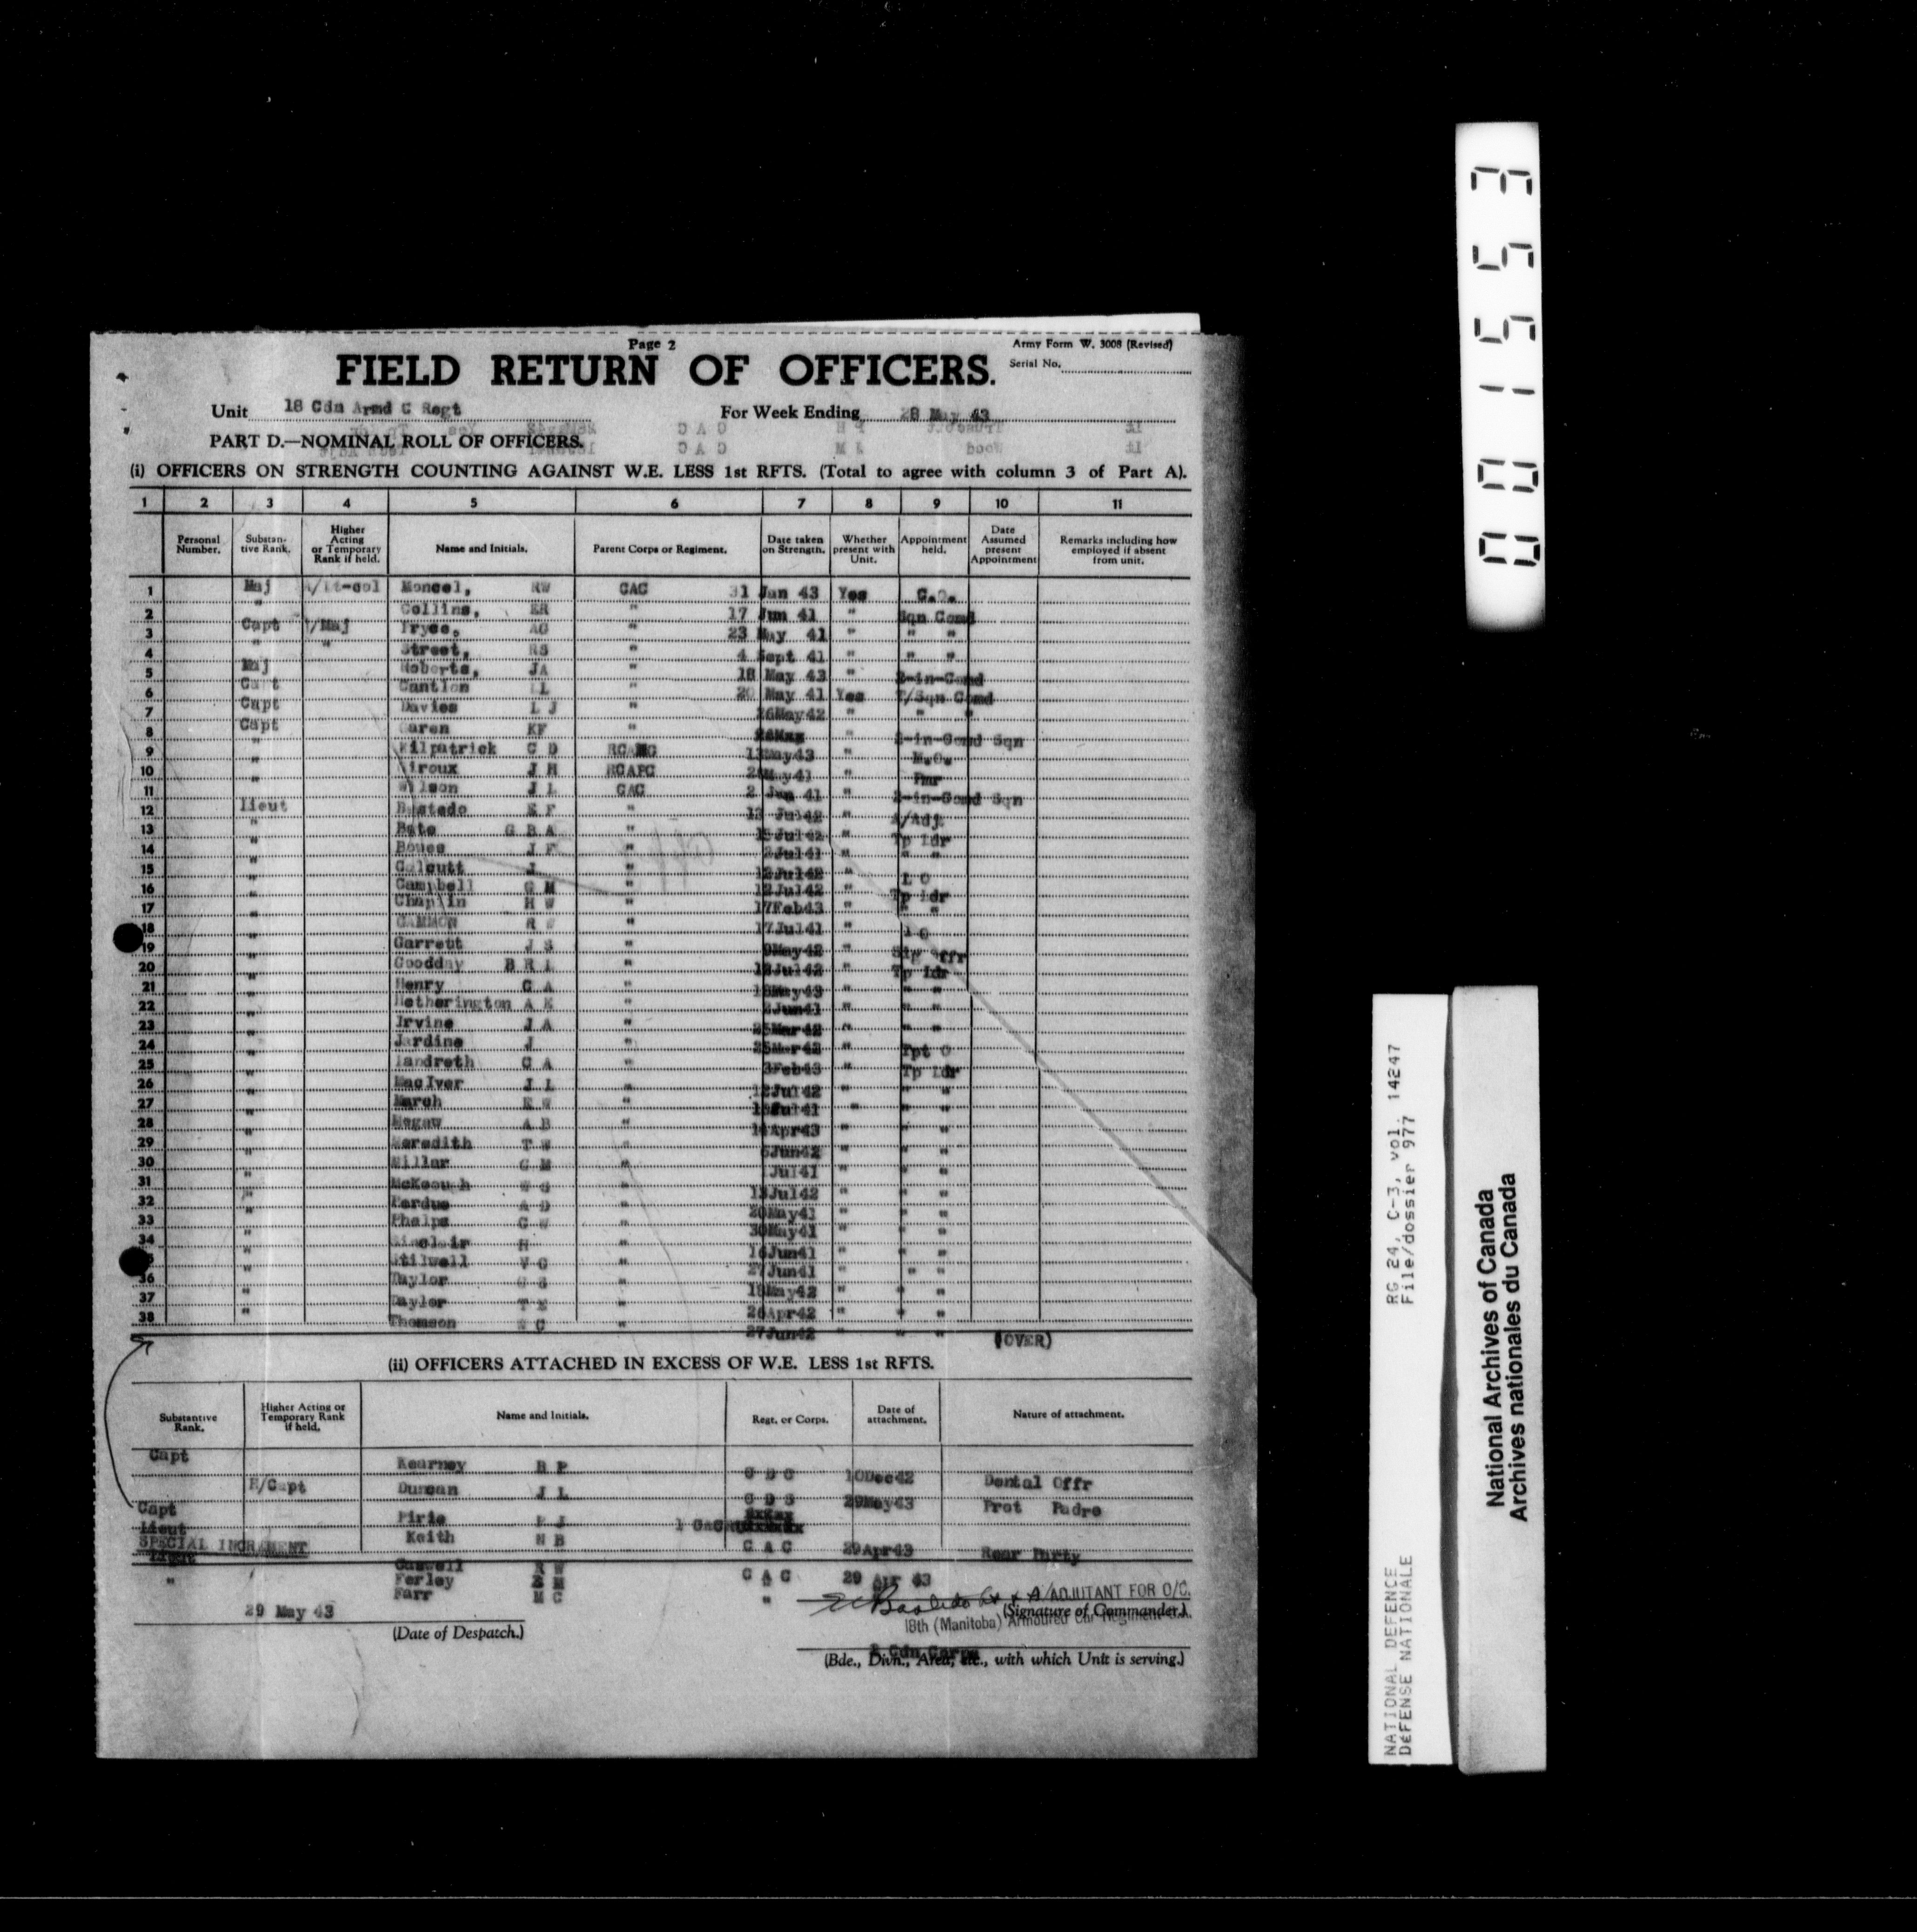 Page 2
Army Form W. 3008 (Revised)
FIELD RETURN OF OFFICERS.
Serial No.
Unit 18 Cdn Armd C Regt For Week Ending 28 May 43
PART D.—NOMINAL ROLL OF OFFICERS.
(i) OFFICERS ON STRENGTH COUNTING AGAINST W.E. LESS 1st RFTS. (Total to agree with column 3 of Part A).
1 2 3 4 5 6 7 8 9 10 11
Personal Number. Substantive Rank. Higher Acting or Temporary Rank if held. Name and Initials. Parent Corps or Regiment. Date taken on Strength. Whether present with Unit. Appointment held. Date Assumed present Appointment Remarks including how employed if absent from unit.
1 Maj A/Lt-col Moncel, RW CAC 31 Jan 43 Yes C.O.
2 " Collins, ER " 17 Jun 41 " Sqn Comd
3 Capt A/Maj Tryce, AG " 23 May 41 " " "
4 " " Street, RS " 4 Sept 41 " " "
5 Maj Roberts, JA " 18 May 43 2-in-Comd
6 Capt Cantlon " 20 May 41 Yes T/Sqn Comd
7 Capt Davies L J " 26May42 " " "
8 Capt Caren KF " " 2-in-Comd Sqn
9 " Kilpatrick C D RCAMC 13May43 " M.O.
10 " Giroux J H RCAPC May41 " Pmr
11 " Wilson J L CAC 2 Jun 41 " 2-in-Comd Sqn
12 Lieut Bastedo E F " 13 Jul42 " A/Adj
13 " Bate G B A " 15Jul42 " Tp Ldr
14 " Boues J F " 2Jul41 " " "
15 " Calcutt J " 12Jul42 " L O
16 " Campbell G M " 12Jul42 " Tp Ldr
17 " Chaplin H W " 17Feb43 " " "
18 " GAMMON R W " 17Jul41 " I O
19 " Garrett J S " 9May42 " Sig Offr
20 " Goodday B R L " 12Jul42 " Tp Ldr
21 " Henry G A " 18May43 " " "
22 " Hetherington A E " 2Jun41 " " "
23 " Irvine J A " 25Mar42 " " "
24 " Jardine J " 25Mar42 " Tpt O
25 " Landreth C A " 3Feb43 " Tp Ldr
26 " MacIver J L " 12Jul42 " " "
27 " March E W " Jul41 " " "
28 " Megaw A B " 14Apr43 " " "
29 " Meredith T W " 6Jun42 " " "
30 " Millar G M " Jul41 " "
31 " McKeough W G " 13Jul42 " " "
32 " Perdue A D " 20May41 " " "
33 " Phelps C W " 30May41 " " "
34 " Sinclair H " 16Jun41 " " "
Stilwell V C " 27Jun41 " " "
36 " Taylor " 18May42 " " "
37 " Taylor T E " 26Apr42 " " "
38 " Thomson C " 27Jun42 " " "
(OVER)
(ii) OFFICERS ATTACHED IN EXCESS OF W.E. LESS 1st RFTS.
Substantive Rank. Higher Acting or Temporary Rank if held. Name and Initials. Regt. or Corps. Date of attachment. Nature of attachment.
Capt Kearney B P C D C 10Dec42 Dental Offr
H/Capt Duncan J L C D S 29May43 Prot Padre
Capt Pirie J 1 CAC
Lieut Keith N B C A C 29Apr43 Rear Party
SPECIAL INCREMENT
Lieut Caswell R W C A C 29 Apr 43
" Ferley E M "
Farr M C "
29 May 43
(Date of Despatch.)
E Bastedo Lt A/ADJUTANT FOR O/C.
(Signature of Commander.)
18th (Manitoba) Armoured Car Regiment
2 Cdn Corps
(Bde., Divn., Area, etc., with which Unit is serving.)
001553
RG 24, C-3, vol. 14247
File/dossier 977
NATIONAL DEFENCE
DÉFENSE NATIONALE
National Archives of Canada
Archives nationales du Canada